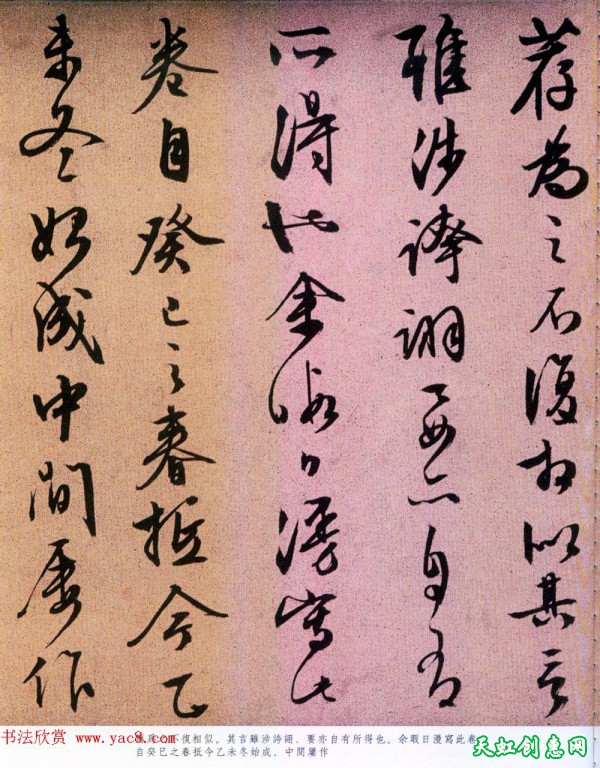 荐為之不復相似其言
雖涉誇詡要亦自有
所得也余暇日漫寫此
卷自癸巳之春抵今乙
未冬始成中間屢作
為之不復相似。其言雖涉誇詡、要亦自有所得也。余暇日漫寫此卷
自癸巳之春抵今乙未冬始成、中間屢作
书法欣赏 www.yac8.com
天虹创意网